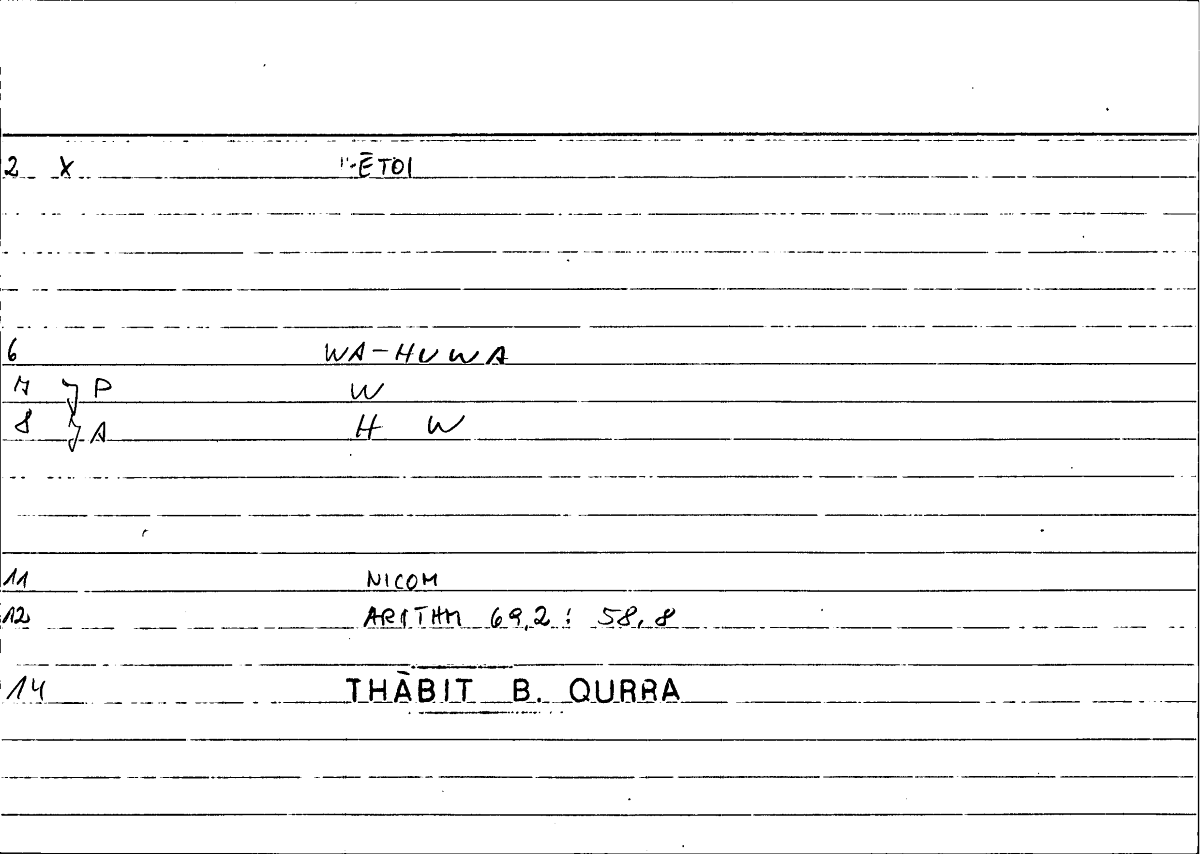 2 X "-ĒTOI
6 WA-HUWA
7 } P W
8 } A H W
11 NICOM
12 ARITHM 69,2 : 58,8
14 THĀBIT B. QURRA